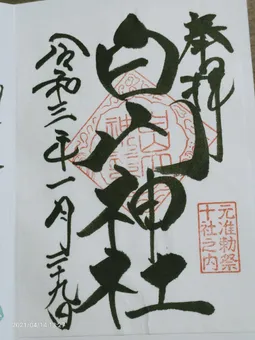 奉拝
白山神社
元准勅祭
十社之内
令和三年一月二十九日